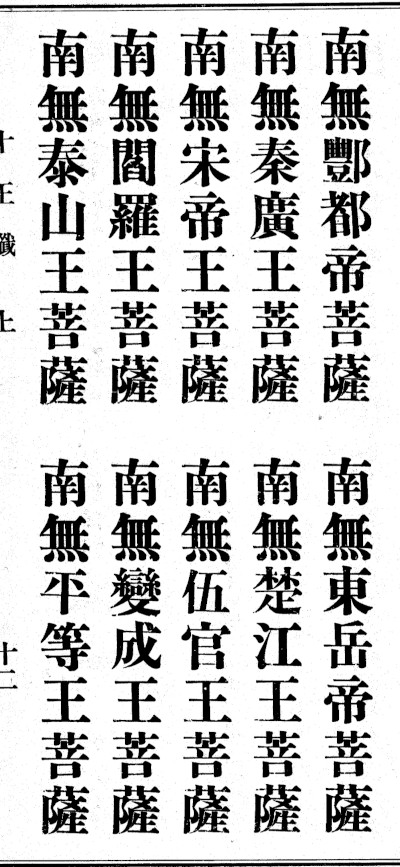 南無酆都帝菩薩
南無東岳帝菩薩
南無秦廣王菩薩
南無楚江王菩薩
南無宋帝王菩薩
南無伍官王菩薩
南無閻羅王菩薩
南無變成王菩薩
南無泰山王菩薩
南無平等王菩薩
十王懺上
十二